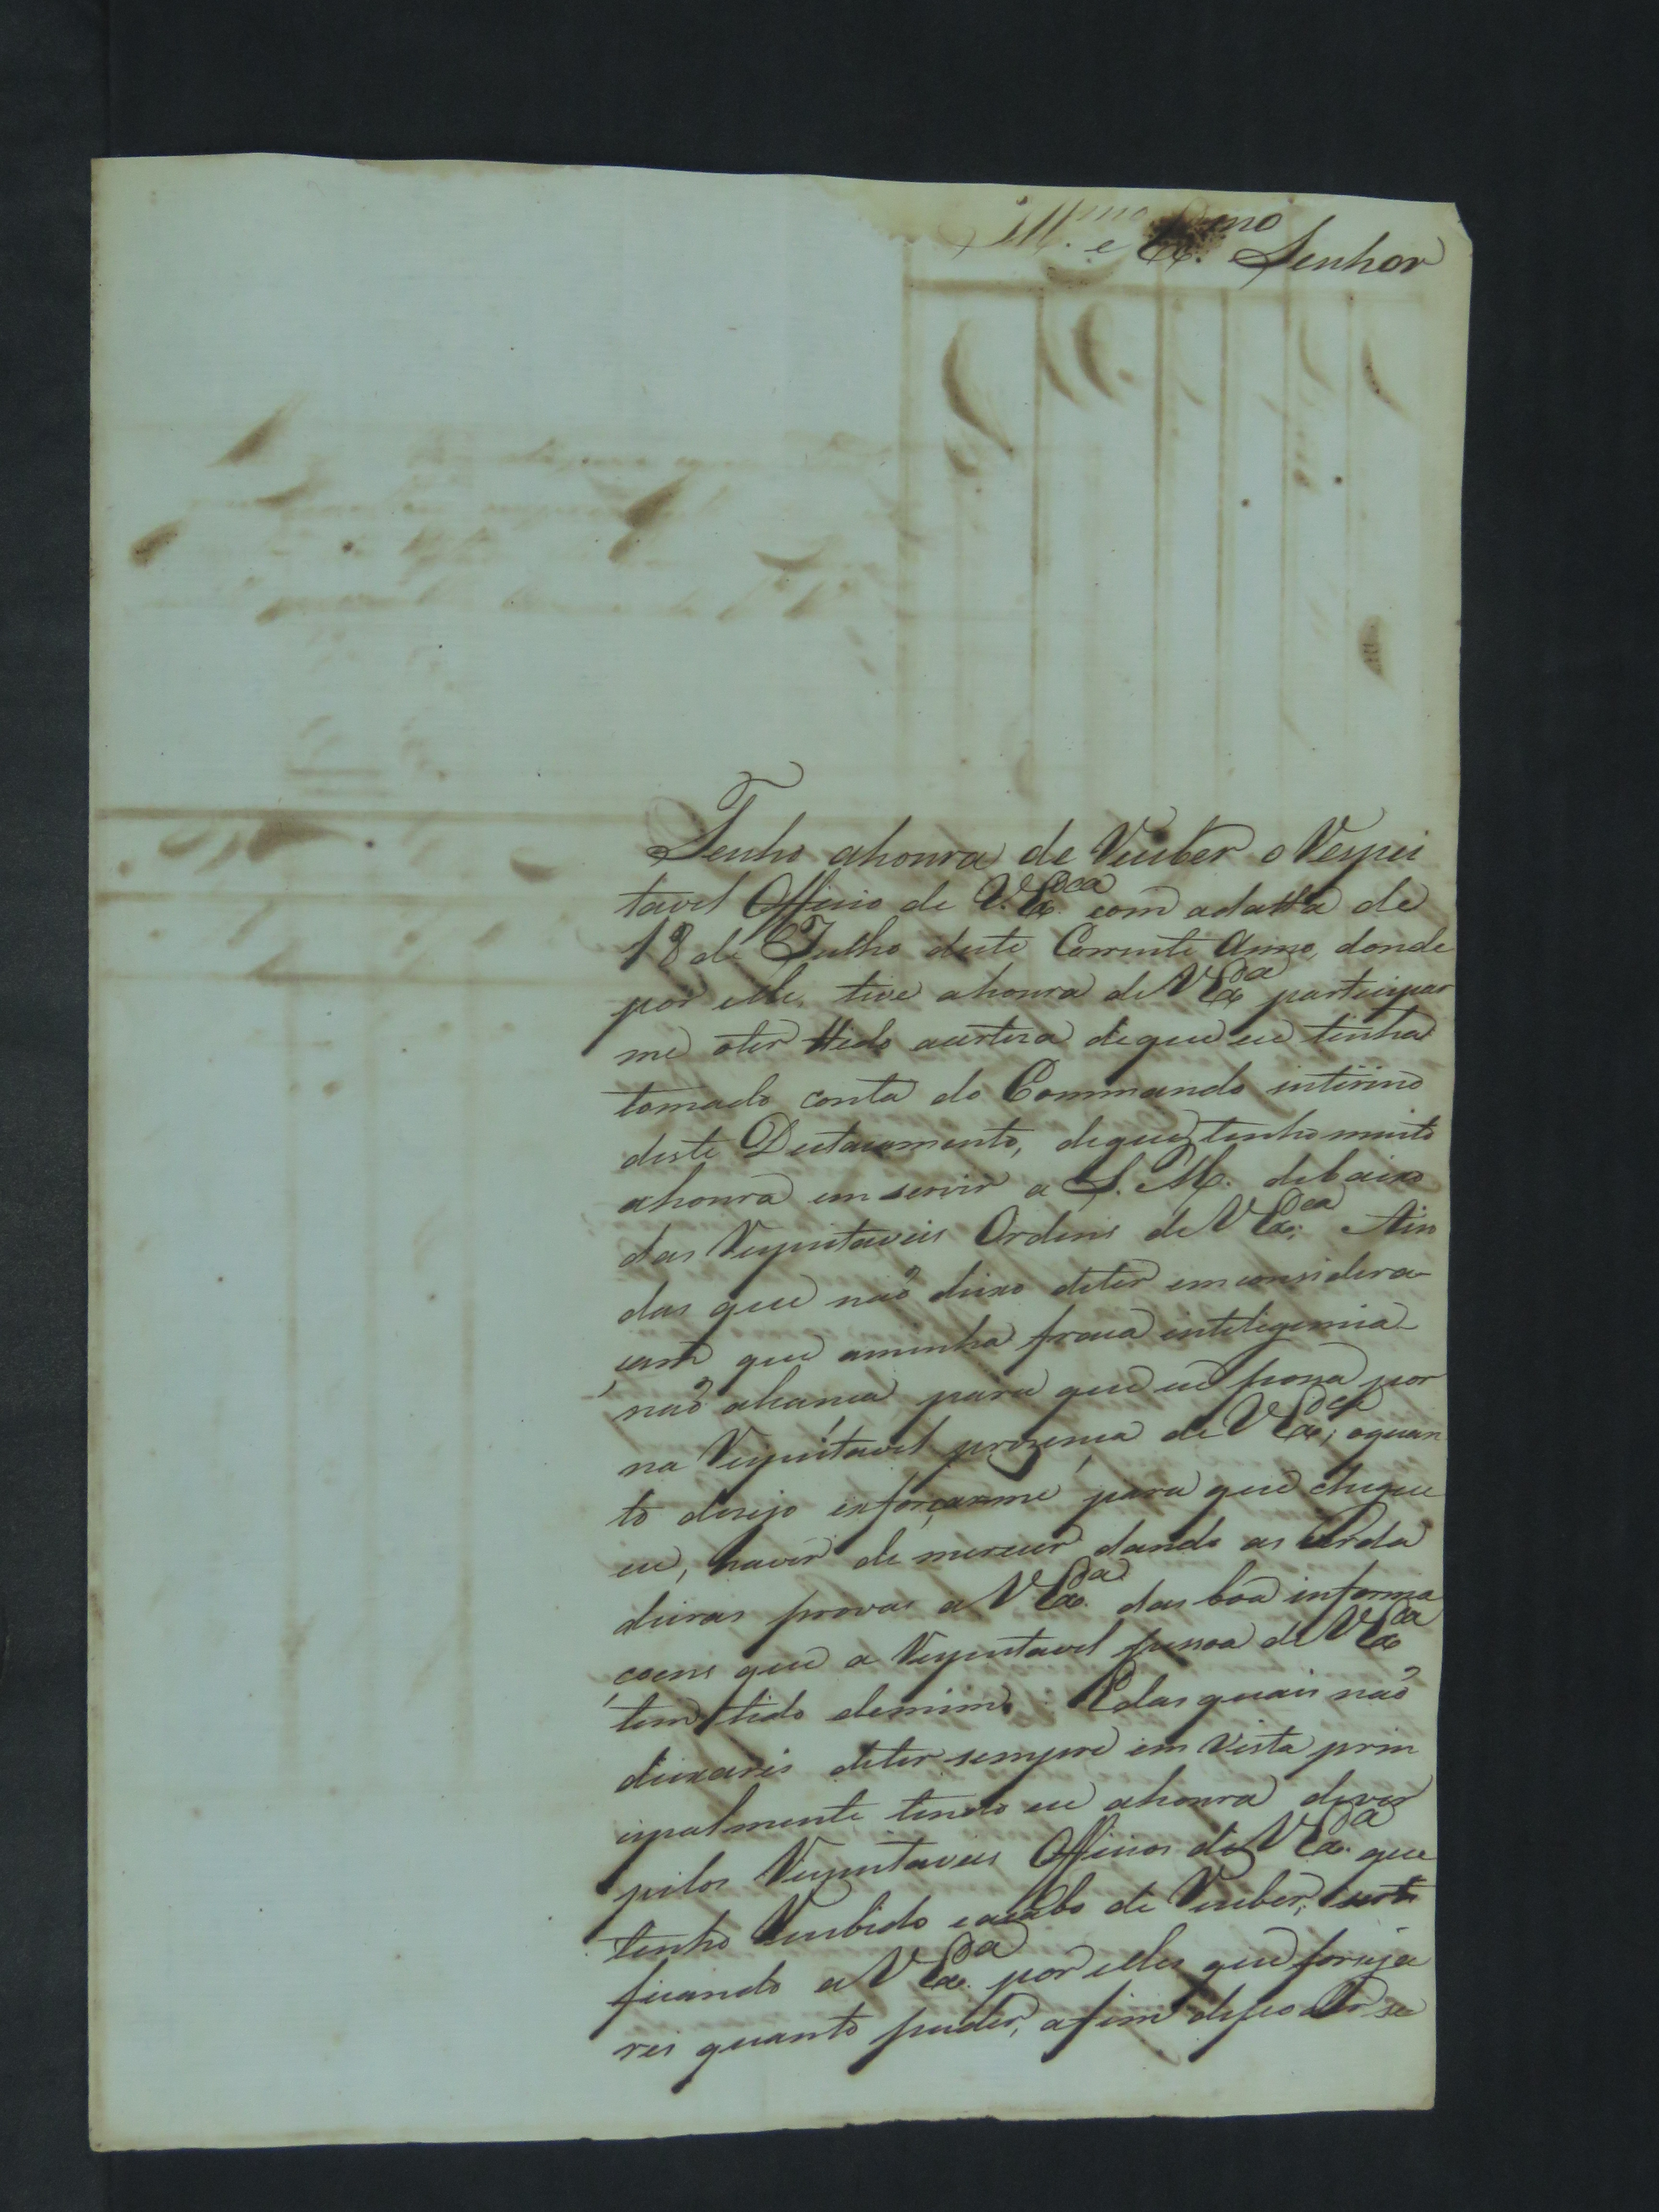 Ill.mo e Ex.mo Senhor
Tenho ahonra de Receber o Respei
tavel Officio de V. Ex.cia com adatta de
18 de Julho deste Corrente Anno, donde
por elle, tive ahonra de V Ex.cia participar
me oter ttido acerteza dique eu tinha
tomado conta do Commando intirino
deste Destacamento, dique tenho muito
ahonra em servir a S. M. debaixo
das Respeitaveis Ordens de V Ex.cia; Ain
das que não deixo deter em considera
çam que aminha fraca inteligencia
não alcança para que eu possa por
na Respeitavel prezença de V Ex.cia; oquan
to desejo exforçarme para que chegue
eu, havir de merecer dando as Verda
deiras provas a V Ex.cia das boa informa
çoens que a Respeitavel pessoa de V Ex.cia
tem tido demim. Edas quais não
deixareis deter sempre em Vista prin
cipalmente tendo eu ahonra dever
pelos Respeitaveis Officios de V Ex.cia que
tenho Recebido eacabo de Receber, certi
ficando a V Ex.cia por elles que forceja
rei quanto puder, afim depoder se